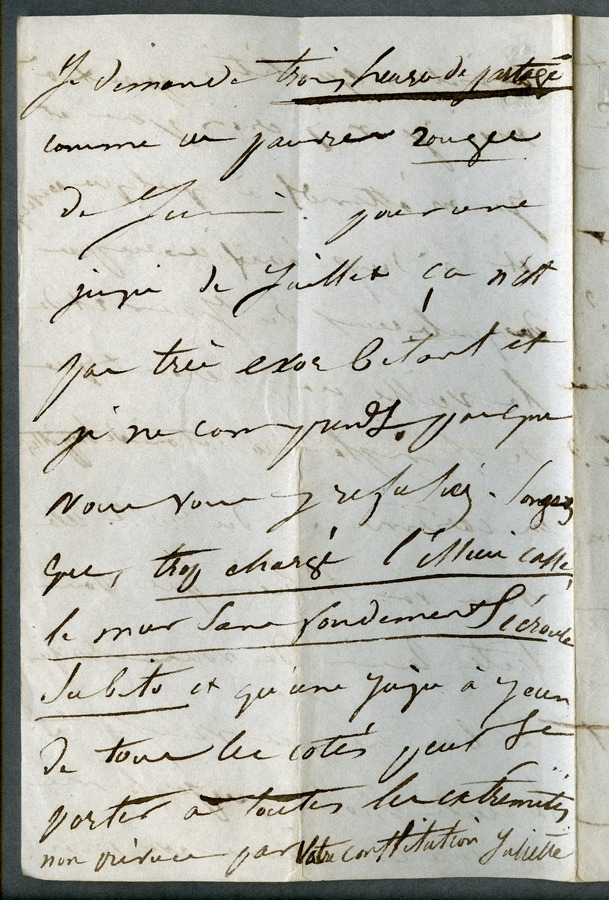 Je demande trois heures de partage
comme un pauvre
de pour une
juju de Juillet ça n'est
pas très exorbitant et
je ne comprends pas que
vous vous y refusiez. Songez
que, trop chargé l'essieu casse,
le mur sans fondement s'écroule
subito et qu'une juju à jeun
de tous les côtés peut se
porter à toutes les extrémités
non prévues par votre constitution Juliette